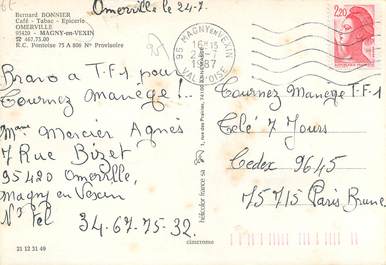 Bernard BONNIER
Café - Tabac - Epicerie
OMERVILLE
95420 - MAGNY-en-VEXIN
☎ 467.75.00
R.C. Pontoise 75 A 806 N° Provisoire
Omerville le 24-7
95 MAGNY EN VEXIN
16H15
24-7
1987
VAL D'OISE
2,20
Bravo a T-F1 pour
Tournez manège !..
Mme Mercier Agnès
7 Rue Bizet
95420 Omerville
Magny en Vexin
N° Tel 34-67-75-32.
Tournez Manège T-F-1
Télé 7 Jours
Cedex 9645
75715 Paris Brune
hélicolor france sa
cimcrome
21 12 31 49